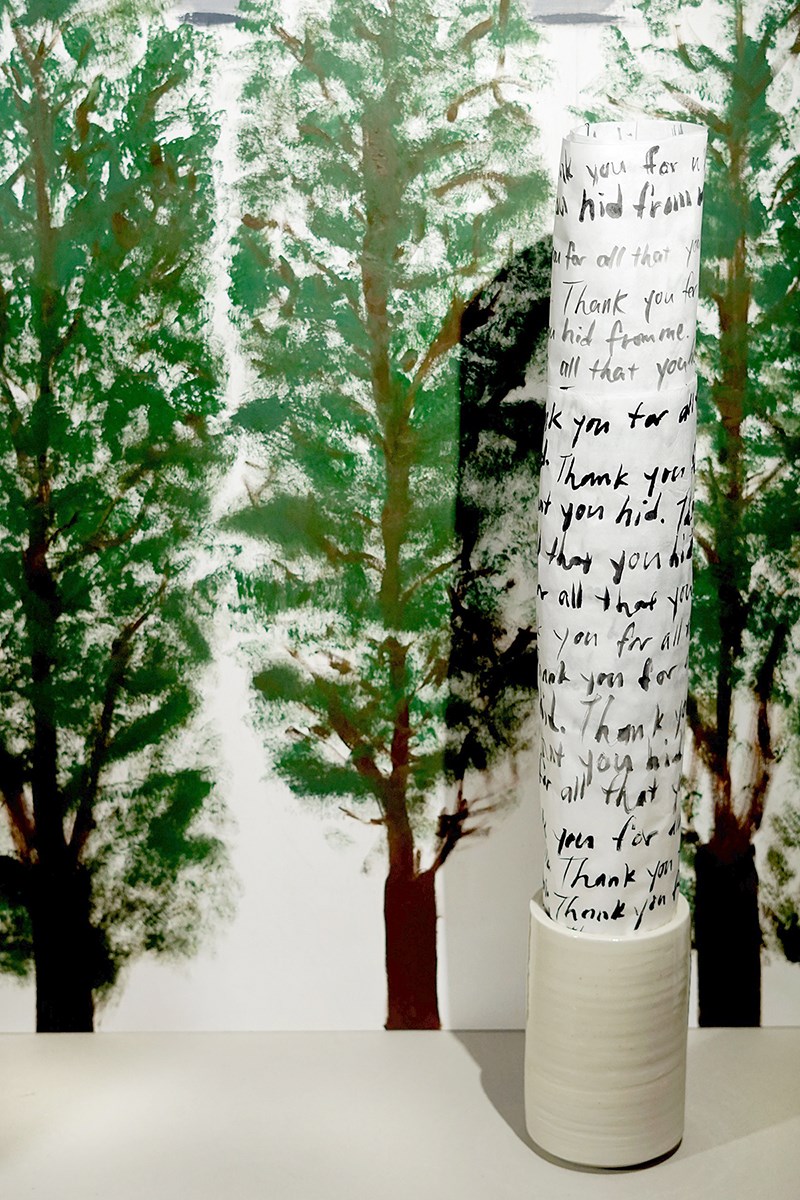 you for
hid from
for all that
Thank you for
hid from me.
all that you
you for all
Thank you
you hid.
that you hid
all that you
you for all
you for
Thank
you hid
all that
you for
Thank you
Thank you